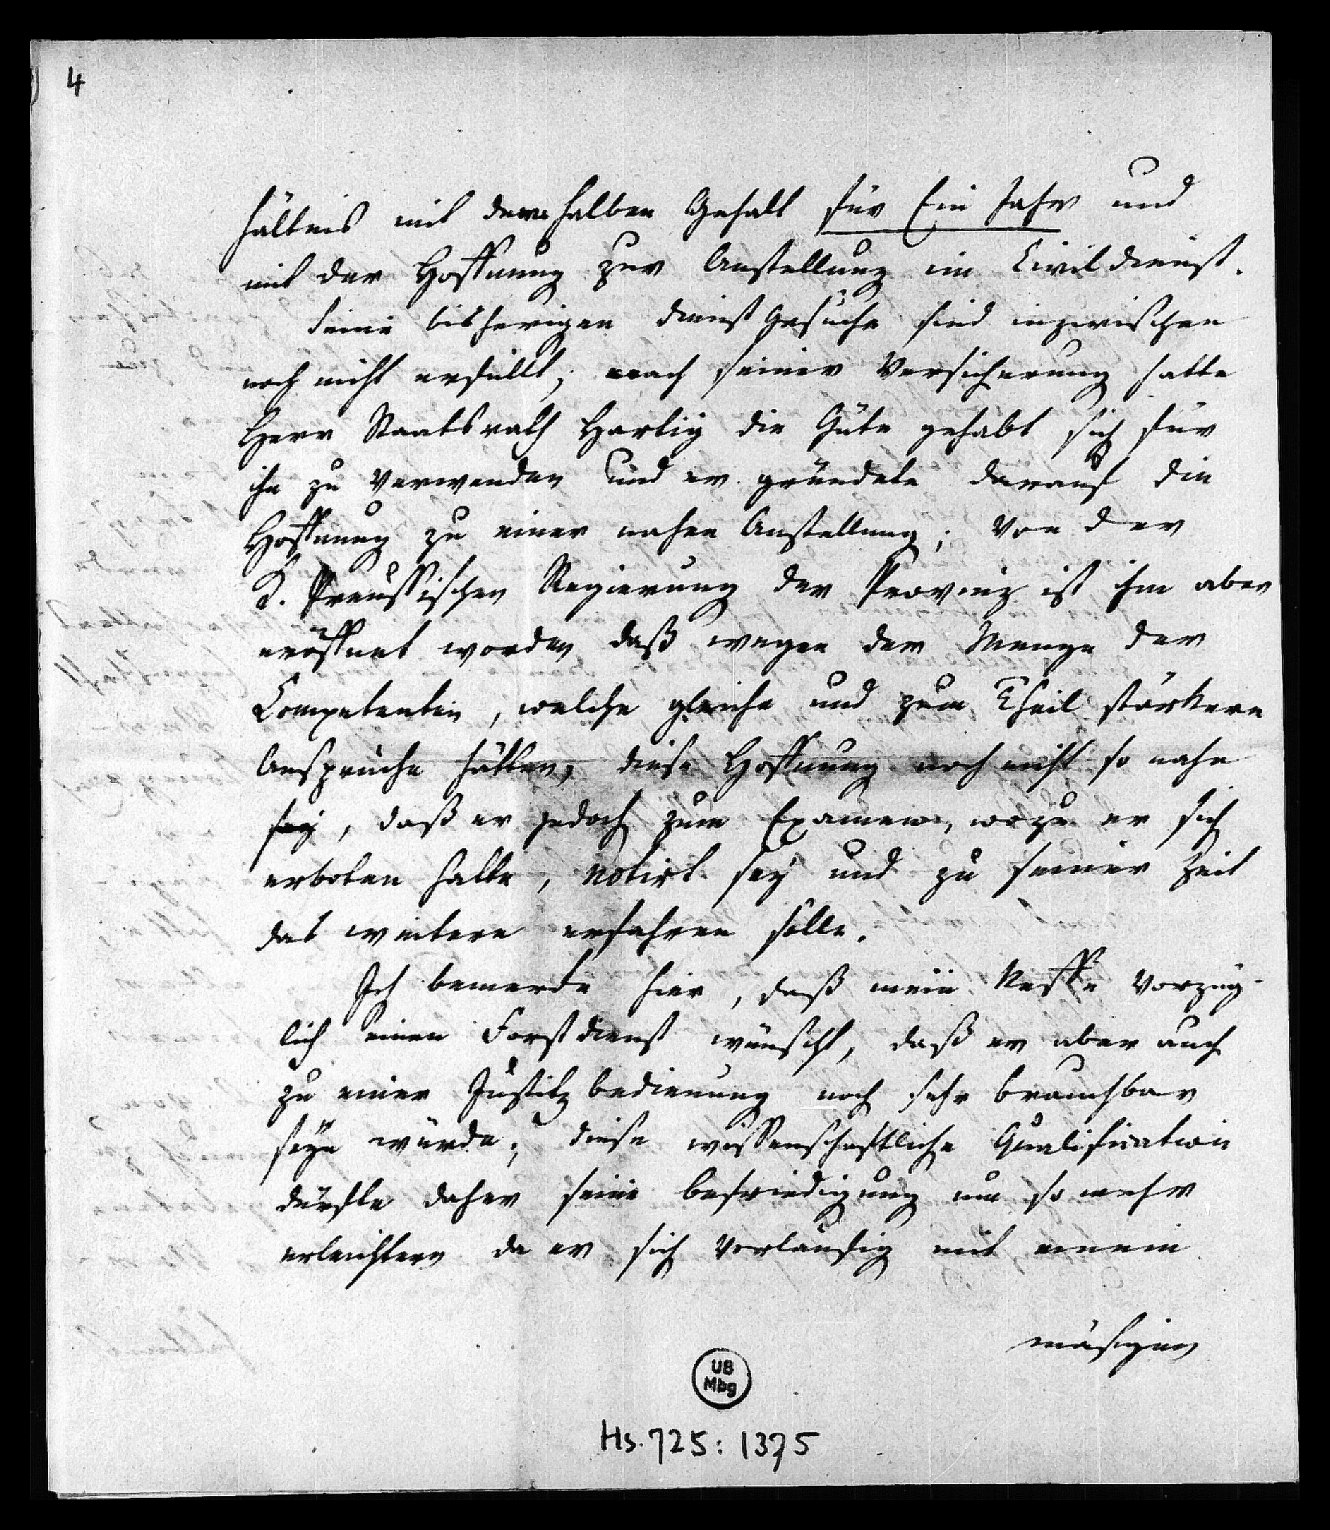 4
hältnis mit dem halben Gehalt für Ein Jahr und
mit der Hoffnung zur Anstellung im Civildienst.
Seine bisherigen Dienst Gesuche sind inzwischen
noch nicht erfüllt; nach seiner Versicherung hatte
Herr Staatsrath Hartig die Güte gehabt sich für
ihn zu verwenden und er gründete darauf die
Hoffnung zu einer nahen Anstellung; von der
K. Preussischen Regierung der Provinz ist ihm aber
eröffnet worden daß wegen der Menge der
Competenten, welche gleiche und zum Theil stärkere
Ansprüche hätten, diese Hoffnung noch nicht so nahe
sey, daß er jedoch zum Examen, wozu er sich
erboten hatte, notirt sey und zu seiner Zeit
das weitere erfahren solle.
Ich bemerke hier, daß mein Neffe vorzüg-
lich einen Forstdienst wünscht, daß er aber auch
zu einer Justitzbedienung noch sehr brauchbar
seyn würde; diese wissenschaftliche Qualification
dürfte daher seine befriedigung um so mehr
erleichtern da er sich vorläufig mit einem
mäsigen
UB
Mbg
Hs. 725: 1375